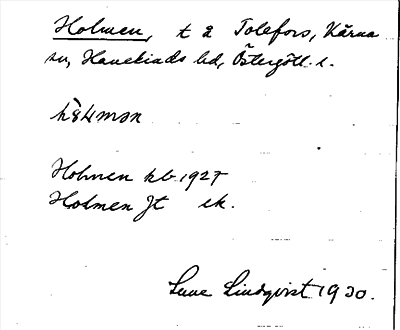 Holmen, t å Tolefors, Kärna
sn, Hanekinds hd, Östergötl. l.
Holmen kb. 1927
Holmen Jt ek.
Sune Lindqvist 1930.